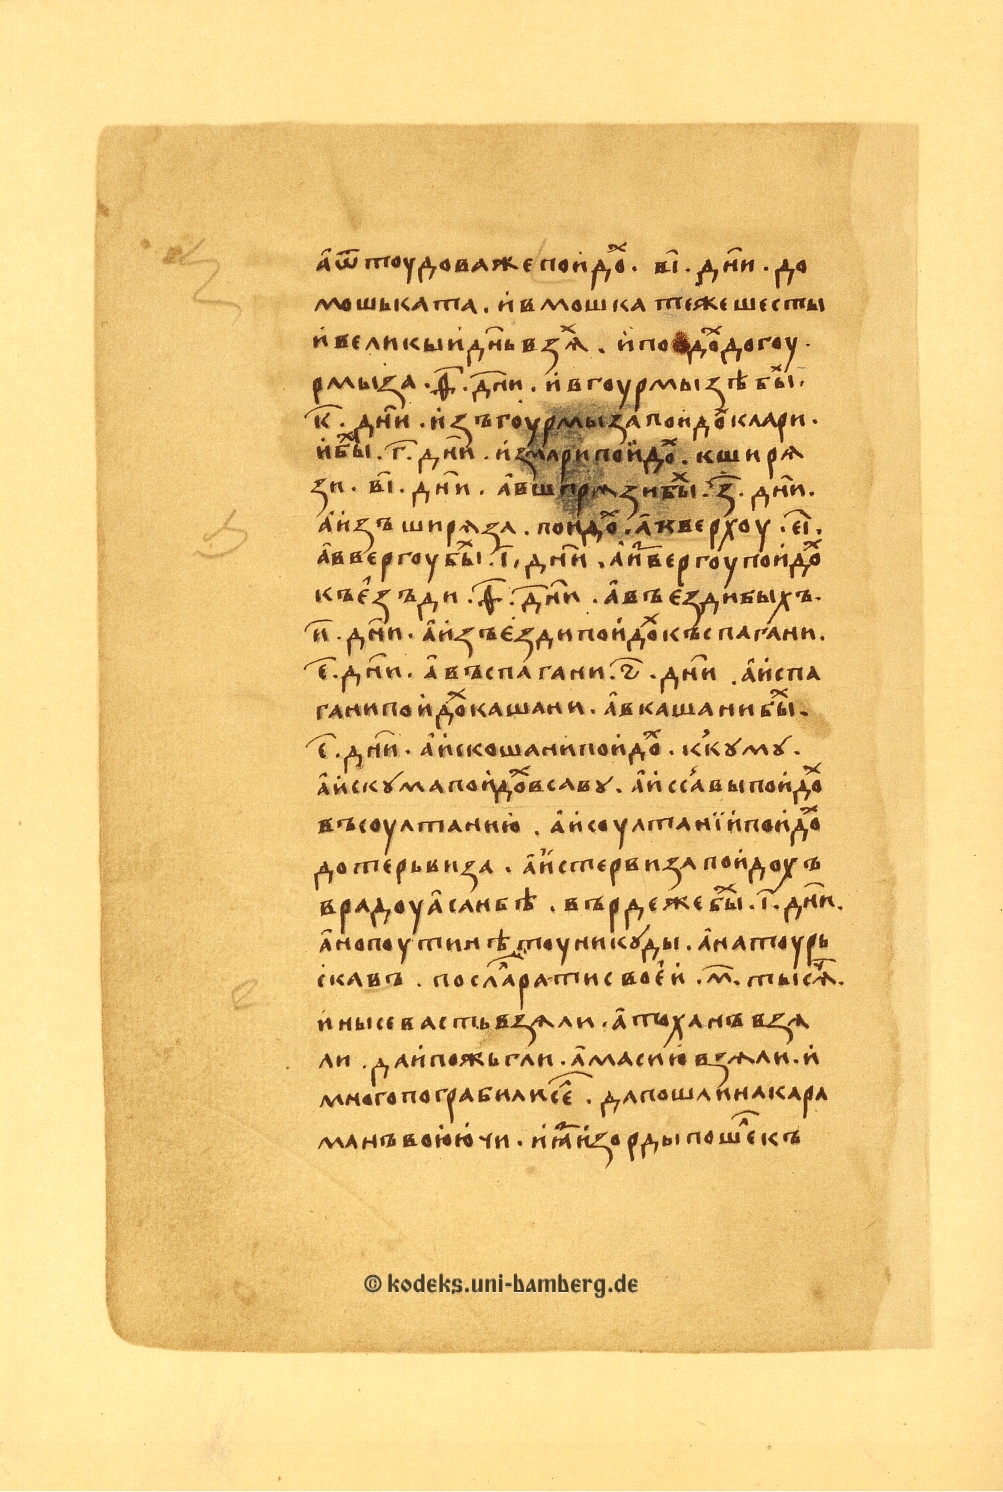 а҆ ѿтоудоваже пои҆дⷪ҇х . в҃і . дн҃и . до
мошьката . и҆ в мошка те же шесты
и҆ великыи҆ дн҃ь взѧⷯ . и҆ по дⷪ҇х до гоу
рмыза . д҃ . дн҃и . и҆ в гоурмызѣ быⷯ .
к҃ . дн҃и . и҆зъ гоурмыза пои҆дⷪ҇х к лари .
и҆ быⷯ . г҃ . дн҃и . и҆з лари пои҆дⷪ҇х . к ширѧ
зи . в҃і . дн҃и . а҆ в ширѧзи быⷯ . з҃ . дн҃и .
а҆ и҆зъ ширѧза . пои҆дⷪ҇х . а҆ к верхоу . е҃і .
а҆ в вергоу быⷯ . і҃ . дн҃и . а҆ и҆з вергоу пои҆дⷪ҇х
къ е҆зъди . д҃ . дн҃и . а҆ въ е҆зди быхъ .
и҃ . дн҃и . а҆ и҆зъ е҆зди пои҆дⷪ҇х къ спагани .
е҃ . дн҃и . а҆ въ спагани . ѕ҃ . дн҃и . а҆ и҆ спа
гани пои҆дⷪ҇х кашани . а҆ в кашани быⷯ .
е҃ . дн҃и . а҆ и҆с кошани пои҆дⷪ҇х . к куму .
а҆ и҆с кума пои҆дⷪ҇х в саву . а҆ и҆с савы пои҆дⷪ҇х
въ соултанию . а҆ и҆ соултанїи҆ пои҆дⷪ҇х
до терьвиза . а҆ и҆с тервиза пои҆дохъ
в радоу а҆санбѣ . въ рдеже быⷯ . і҃ . дн҃и .
а҆но поути нѣтоу никуды . а҆ на тоурь
скавъ . послⷶ рати своеи҆ . м҃ . тысѧⷱ .
и҆ны севасть взѧли . а҆ тоханъ взѧ
ли . да и҆ пожьгли . а҆масию взѧли . и҆
много пограбили сеⷧ . да пошли на кара
манъ воюючи . и҆ ꙗ҆з и҆з орды пошеⷧ къ
© kodeks.uni-bamberg.de